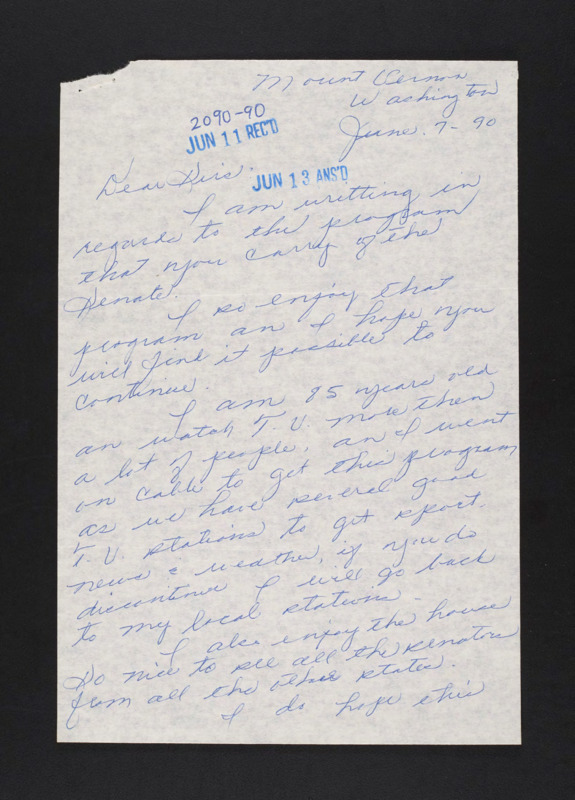 Mount Vernon
Washington
June. 7- 90
2090-90
JUN 11 REC'D
JUN 13 ANS'D
Dear Sirs.
I am writting in
regards to the program
that you carry of the
Senate.
I so enjoy that
program an I hope you
will find it possible to
continue.
I am 85 years old
an watch T.V. more then
a lot of people, an I went
on cable to get this program
as we have several good
T.V. stations to get sport.
news & weather, if you do
discontinue I will go back
to my local stations.
I also enjoy the house
So nice to see all the senators
from all the other states.
I do hope this